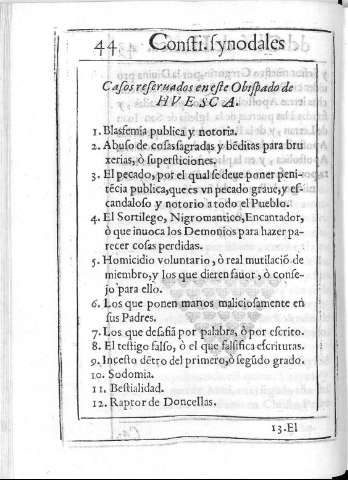 44 Consti. synodales
Casos reseruados en este Obispado de
HVESCA.
1. Blasfemia publica y notoria.
2. Abuso de cosas sagradas y bēditas para bru
xerias, ò supersticiones.
3. El pecado, por el qual se deue poner peni-
tēcia publica, que es vn pecado graue, y es-
candaloso y notorio a todo el Pueblo.
4. El Sortilego, Nigromantico, Encantador,
ò que inuoca los Demonios para hazer pa-
recer cosas perdidas.
5. Homicidio voluntario, ò real mutilaciō de
miembro, y los que dieren fauor, ò conse-
jo para ello.
6. Los que ponen manos maliciosamente en
sus Padres.
7. Los que desafiā por palabra, ò por escrito.
8. El testigo falso, ò el que falsifica escrituras.
9. Incesto dētro del primero, ò segūdo grado.
10. Sodomia.
11. Bestialidad.
12. Raptor de Doncellas.
13. El